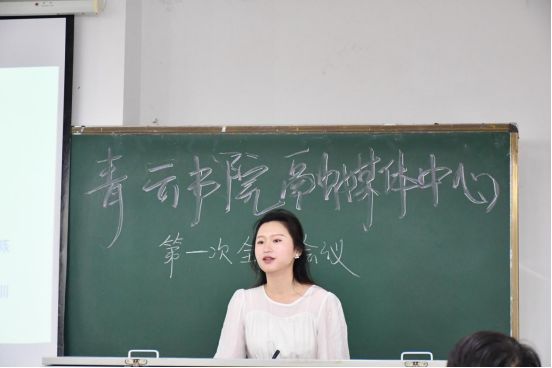 青云书院融媒体中心
第一次全会议